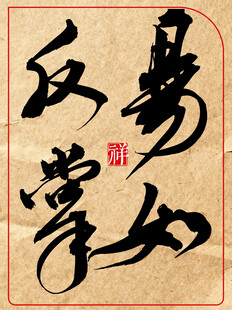 易如
反掌
祥